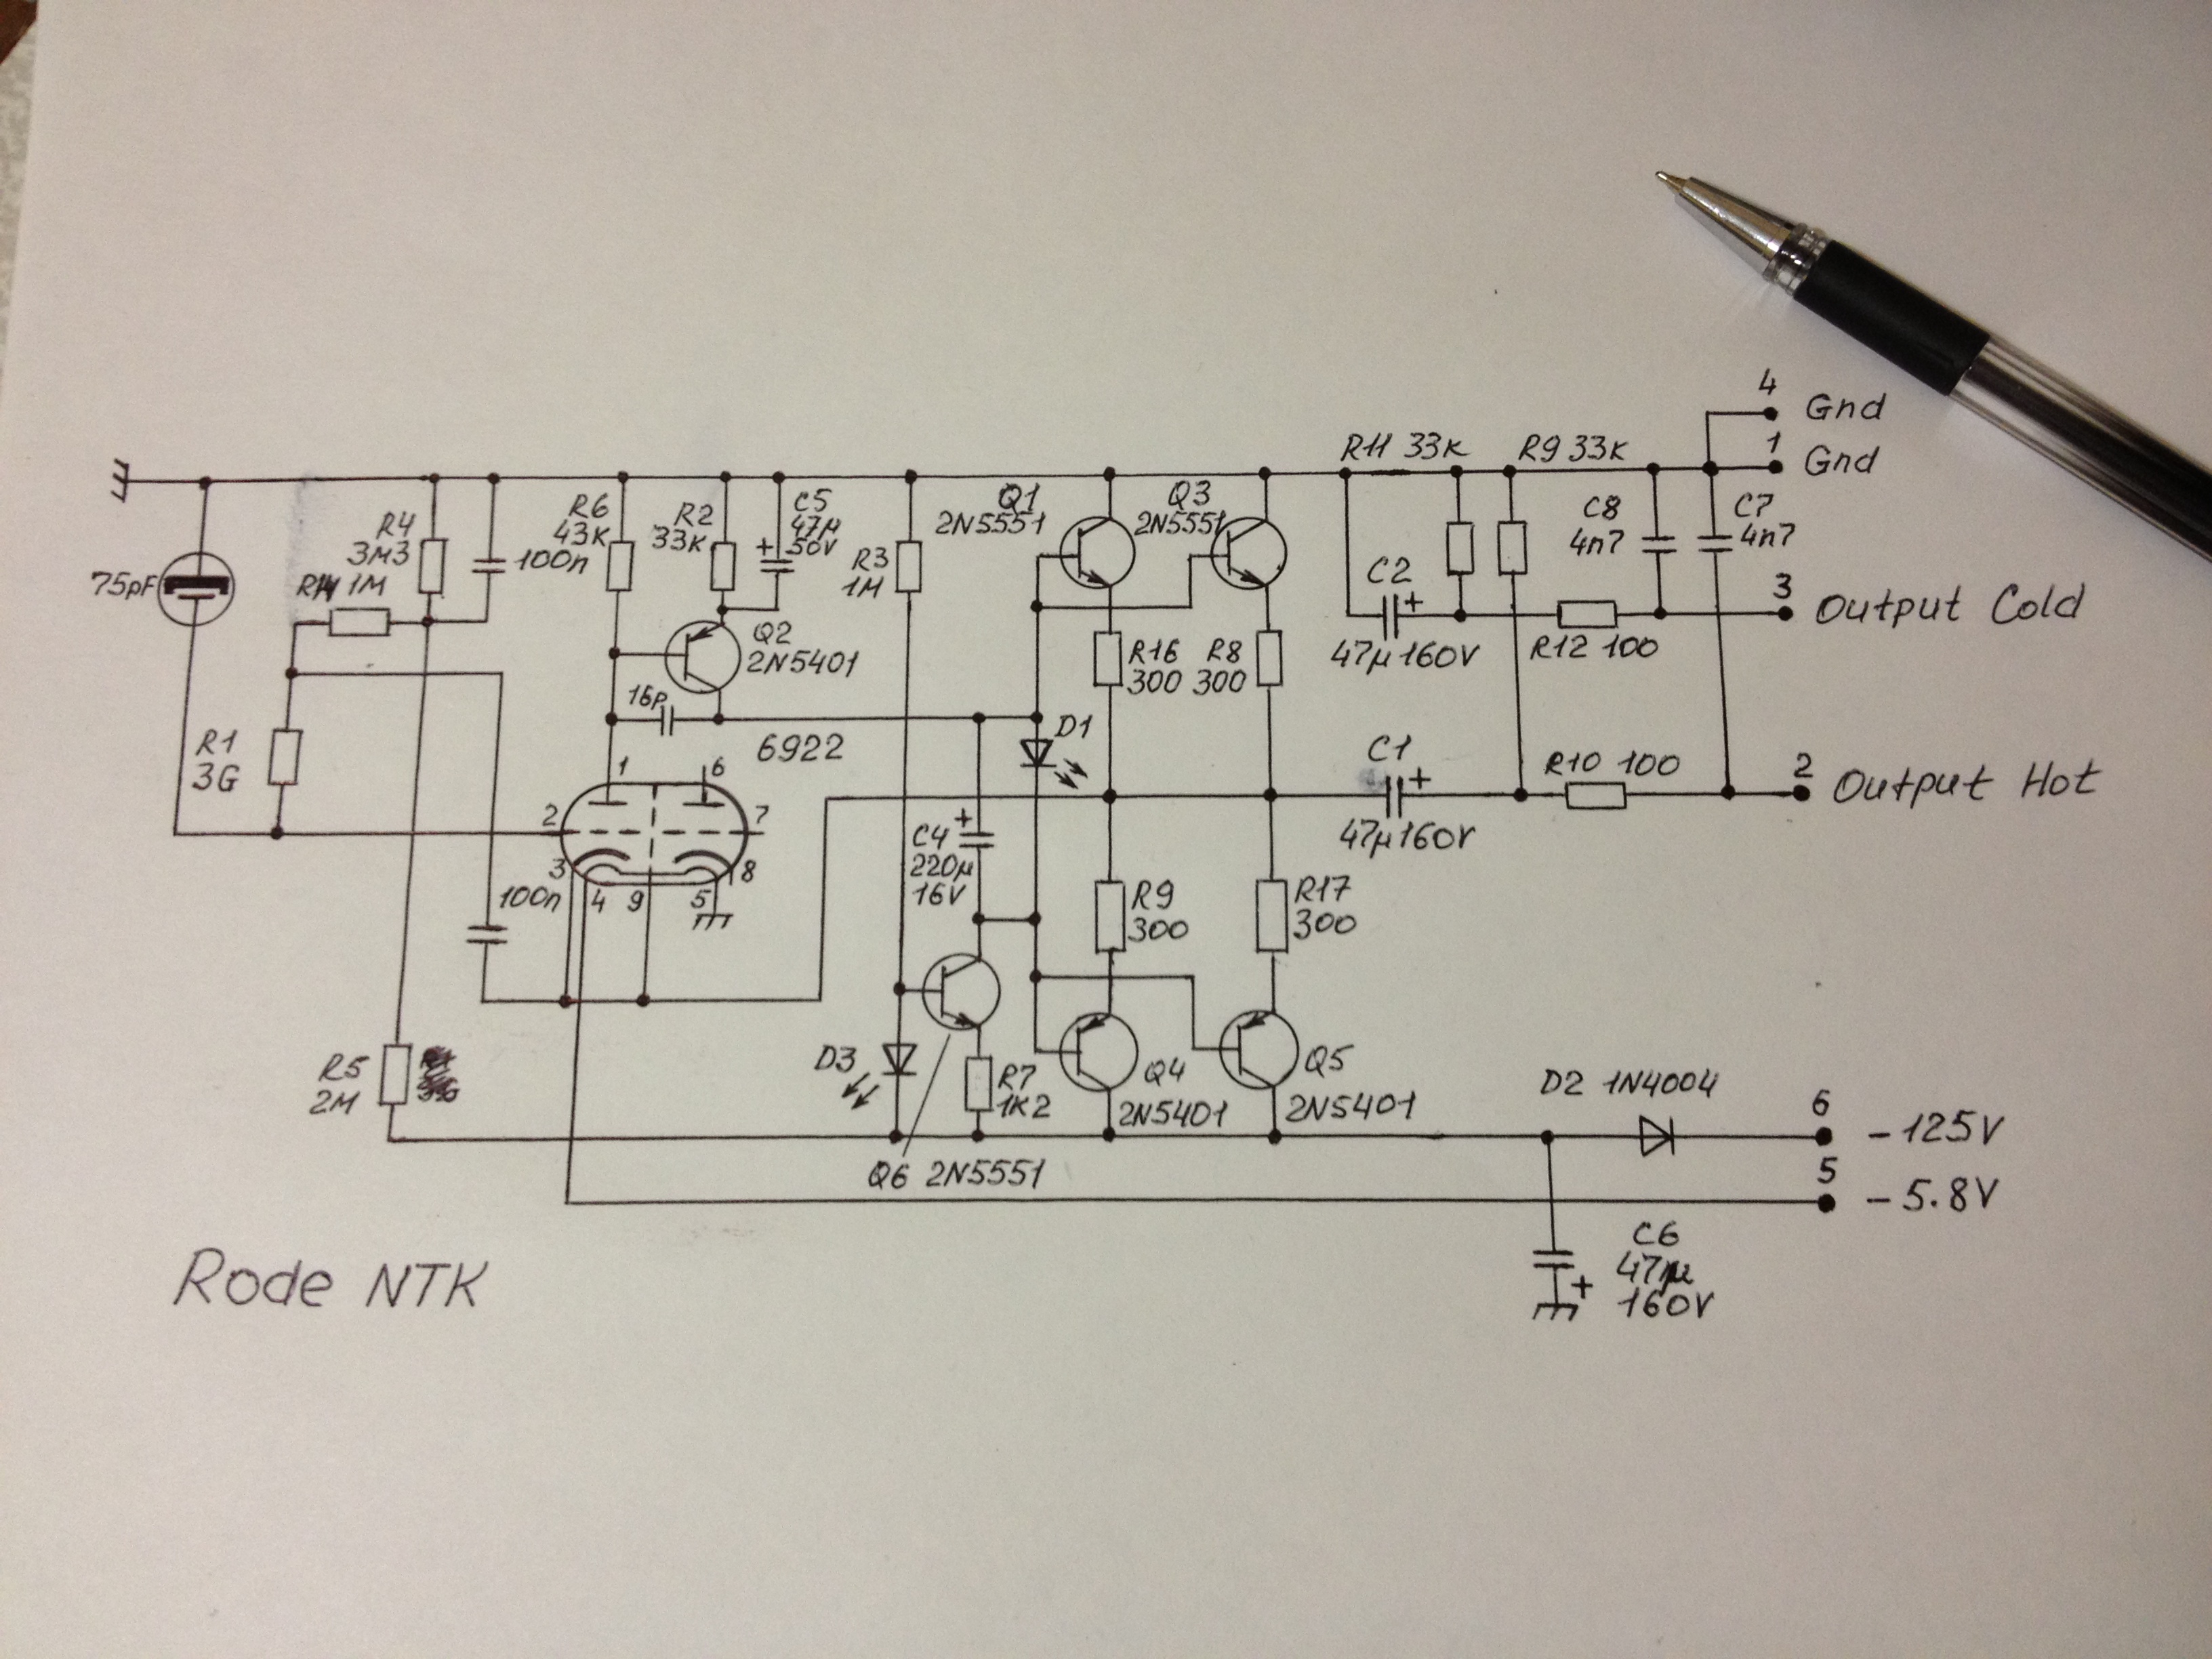 4 Gnd
1 Gnd
R11 33K
R9 33K
Q1
2N5551
Q3
2N5551
R4
3M3
100n
R6
43K
R2
33K
C5
47µ
50V
+
R3
1M
C8
4n7
C7
4n7
75pF
R14 1M
Q2
2N5401
C2
+
47µ 160V
R12 100
3 Output Cold
R16
300
R8
300
16p
6922
D1
R1
3G
1
6
2
7
3
8
4
9
5
C4
220µ
16V
+
C1
+
47µ 160V
R10 100
2 Output Hot
100n
R9
300
R17
300
R5
2M
D3
R7
1K2
Q4
2N5401
Q5
2N5401
Q6 2N5551
D2 1N4004
6 -125V
5 -5.8V
C6
47µ
160V
+
Rode NTK